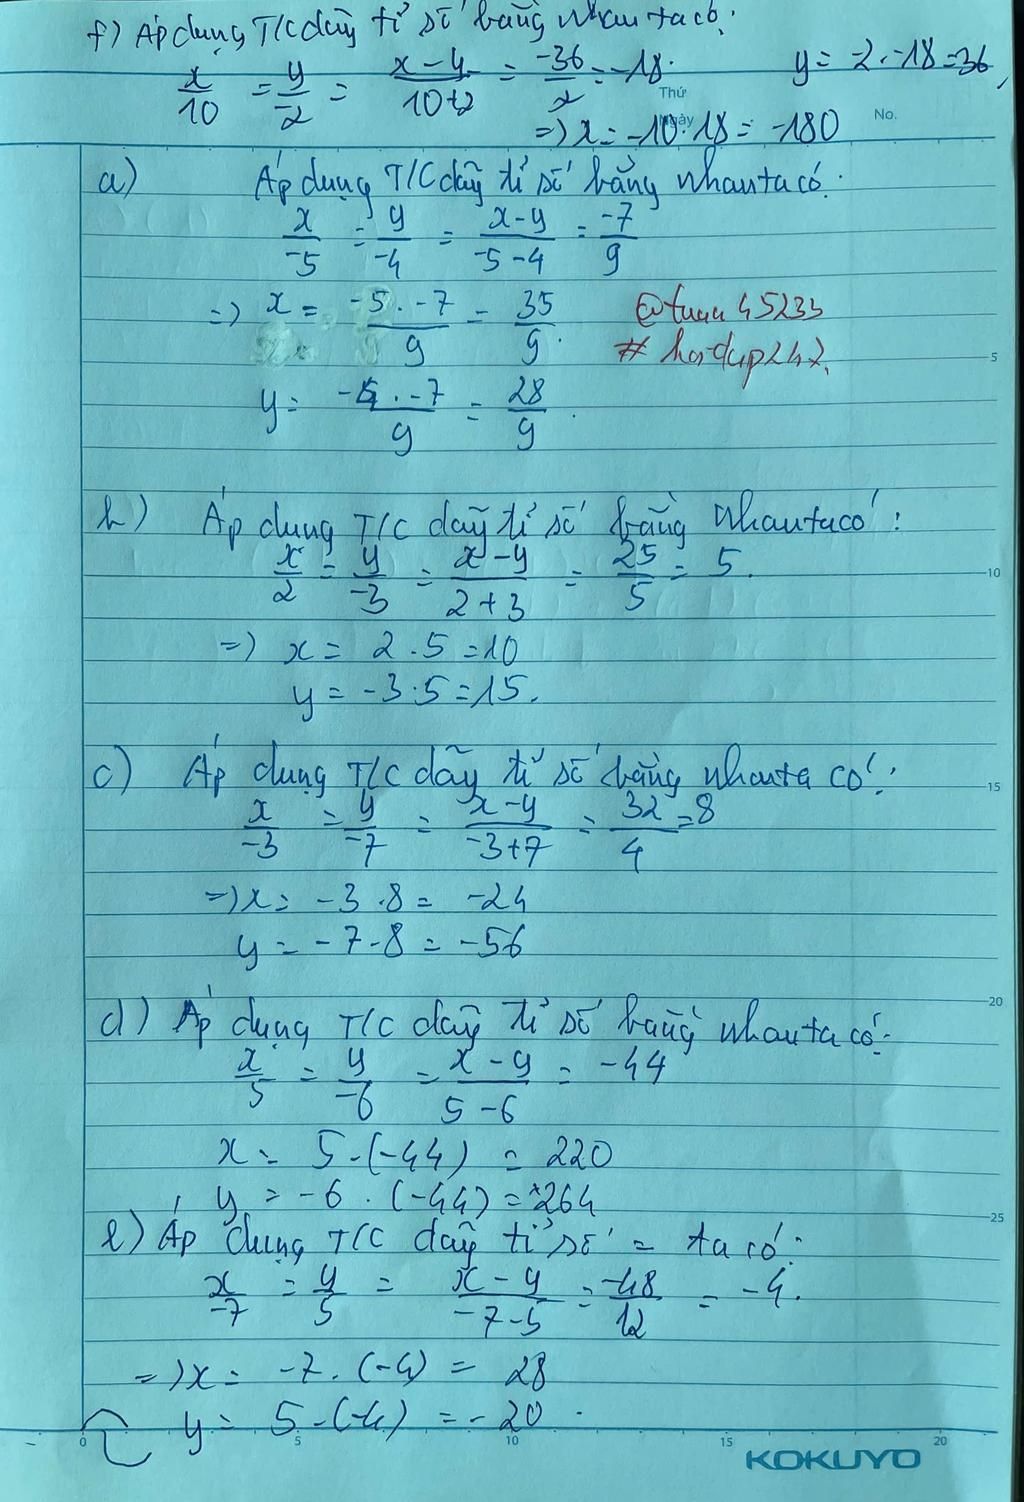 f) Áp dụng T/C dãy tỉ số bằng nhau ta có:
x/10 = y/-2 = x-y/10+2 = -36/2 = -18. y = -2 . -18 = 36,
Thứ
Ngày No.
=> x = -10 . 18 = -180
a) Áp dụng T/C dãy tỉ số bằng nhau ta có:
x/-5 = y/-4 = x-y/-5-4 = -7/9
=> x = -5 . -7/9 = 35/9 .
@tuan45233
y = -4 . -7/9 = 28/9 .
5
b) Áp dụng T/C dãy tỉ số bằng nhau ta có:
x/2 = y/-3 = x-y/2+3 = 25/5 = 5.
10
=> x = 2 . 5 = 10
y = -3 . 5 = 15.
c) Áp dụng T/C dãy tỉ số bằng nhau ta có:
15
x/-3 = y/-7 = x-y/-3+7 = 32/4 = 8
=> x = -3 . 8 = -24
y = -7 . 8 = -56
20
d) Áp dụng T/C dãy tỉ số bằng nhau ta có:
x/5 = y/-6 = x-y/5-6 = -44
x = 5 . (-44) = 220
y = -6 . (-44) = 264
25
e) Áp dụng T/C dãy tỉ số = ta có:
x/-7 = y/5 = x-y/-7-5 = -48/12 = -4.
=> x = -7 . (-4) = 28
y = 5 . (-4) = -20 .
0 5 10 15 20
KOKUYO